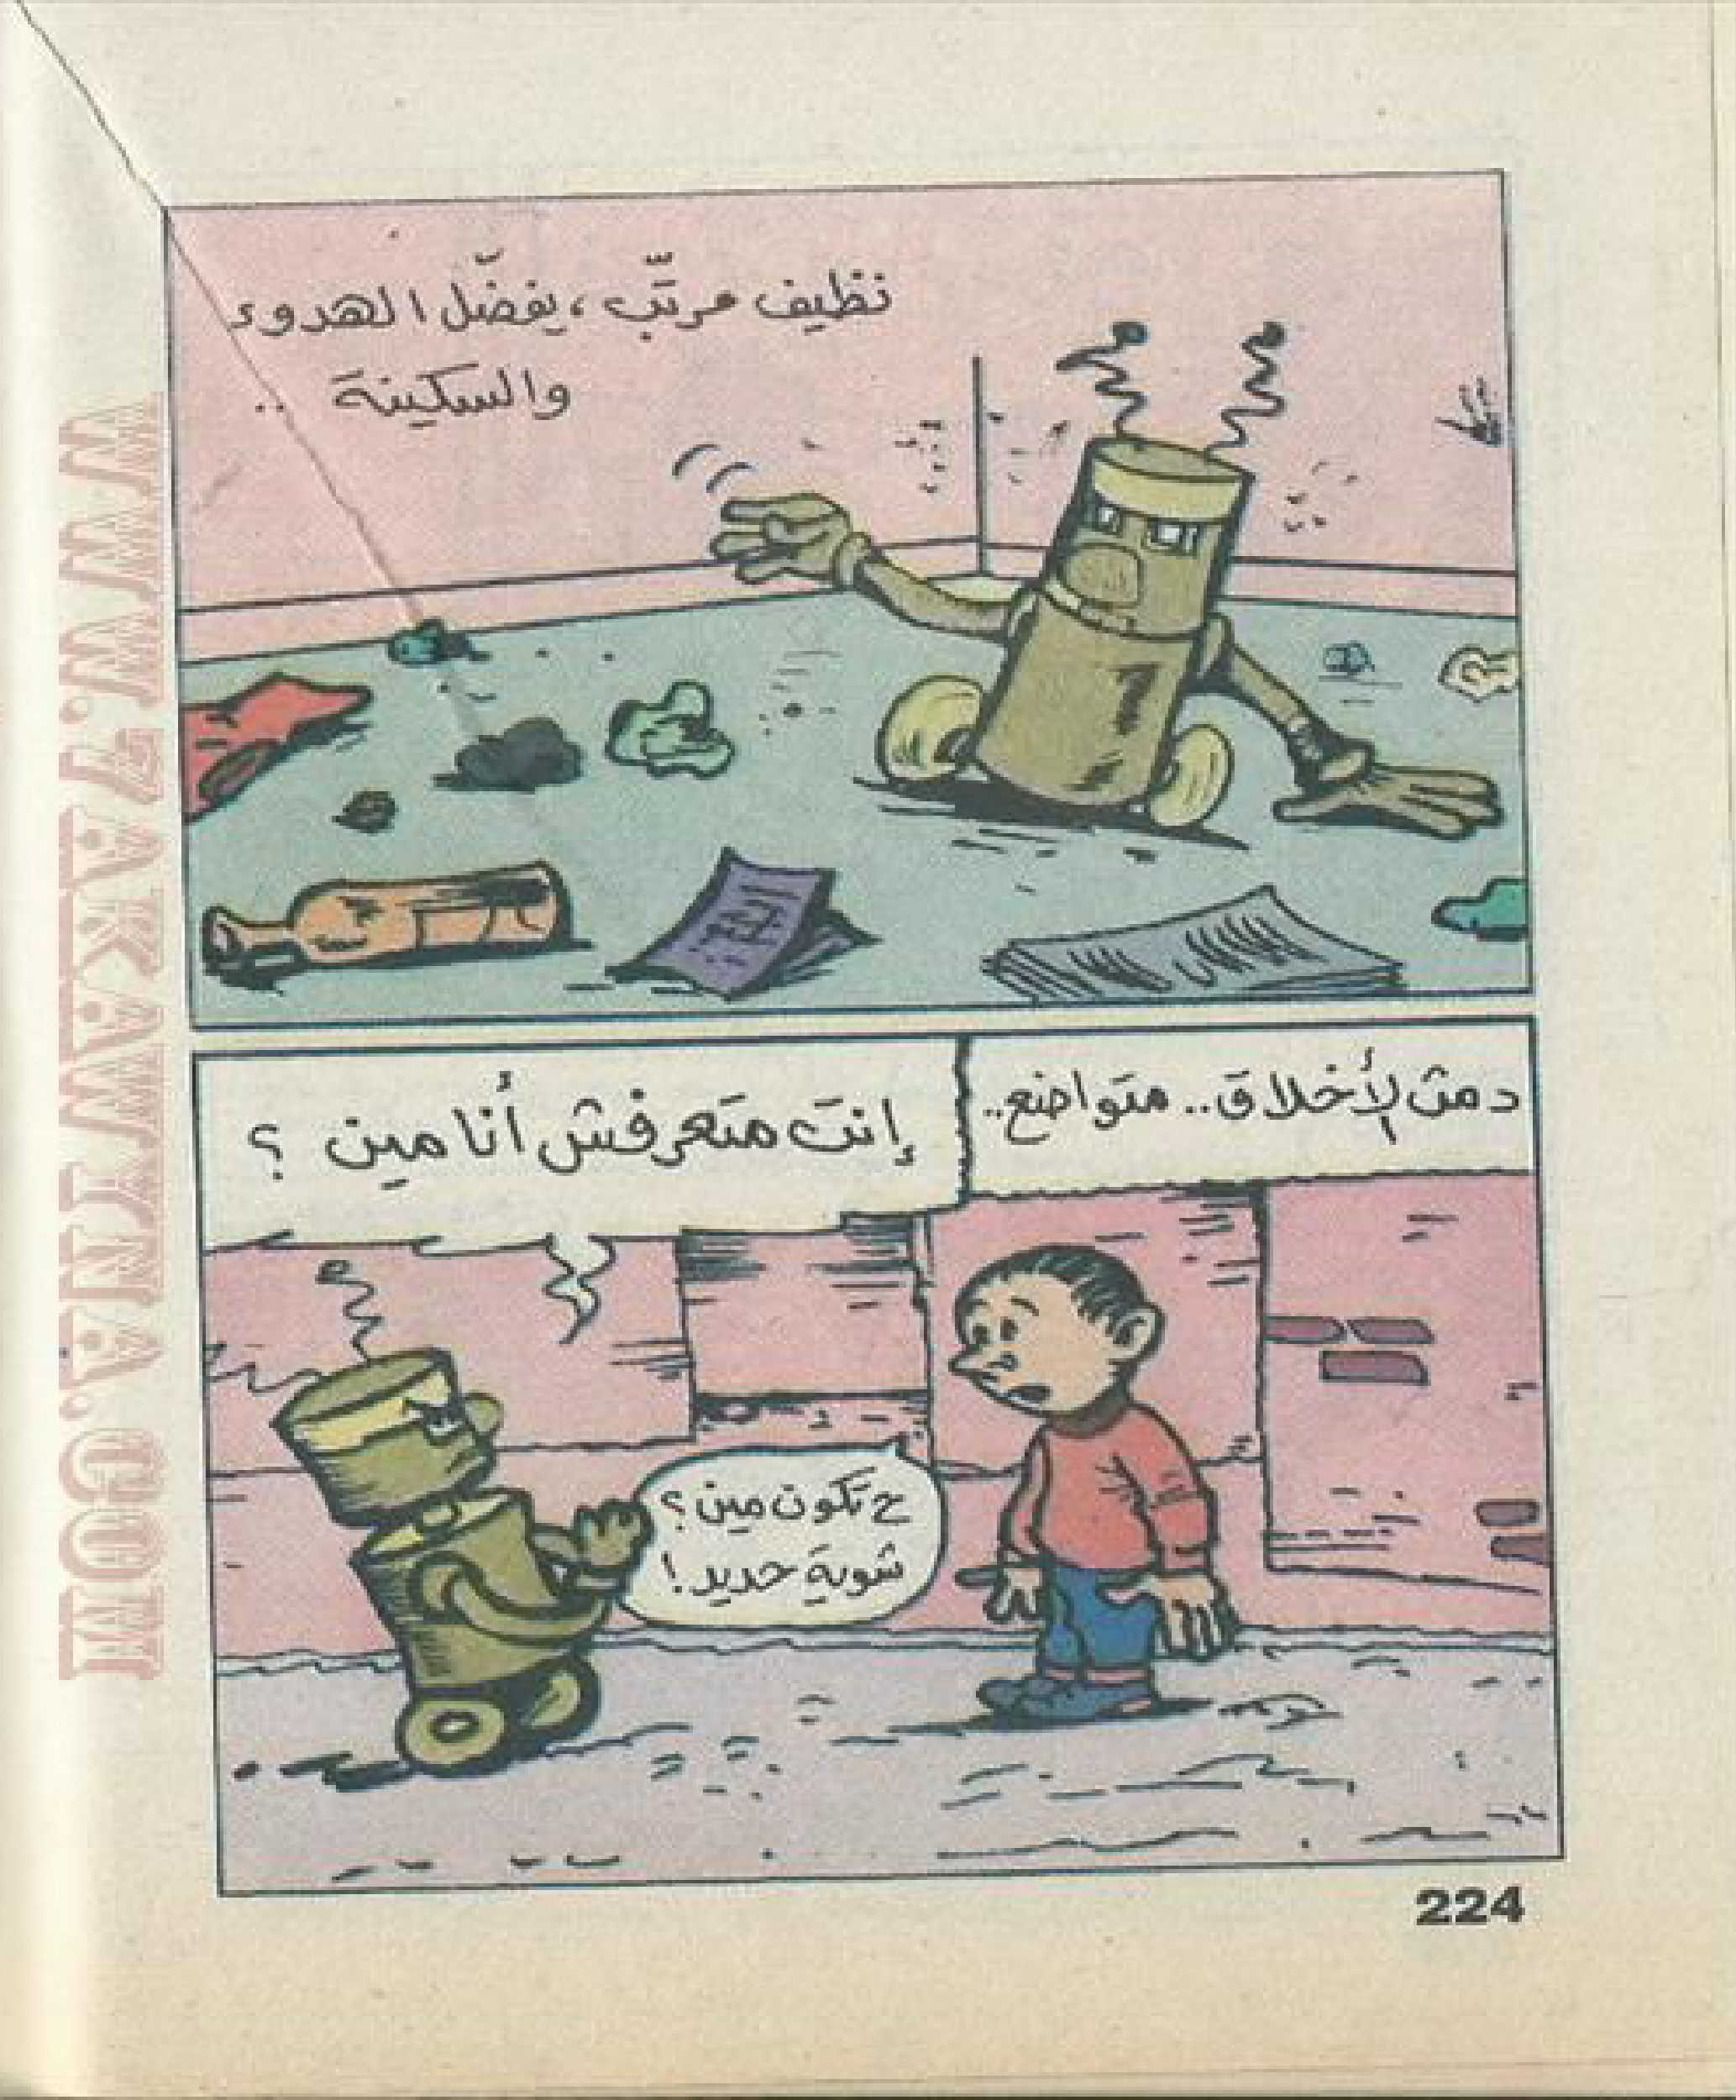 نظيف مرتّب، يفضّل الهدوء
والسكينة ..
دمث الأخلاق.. متواضع..
إنت متعرفش أنا مين ؟
ح تكون مين؟
شوية حديد!
224
WWW.ZAKAWTNA.COM